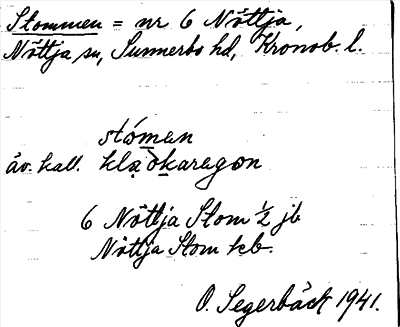 Stommen = nr 6 Nöttja,
Nöttja sn, Sunnerbo hd, Kronob. l.
stómen
äv. kall. klạòkaregon
6 Nöttja Stom ½ jb
Nöttja Stom kb.
O. Segerbäck 1941.